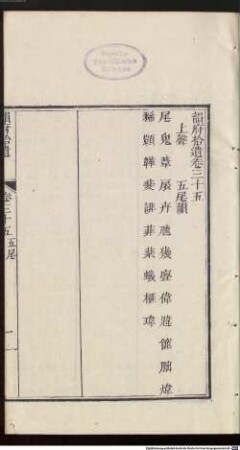 韻府拾遺卷三十五
上聲 五尾韻
尾 鬼 葦 扆 卉 虺 幾 亹 偉 韙 朏 煒
豨 顗 韡 斐 誹 菲 棐 蟻 榧 瑋
韻府拾遺
卷三十五 五尾
一